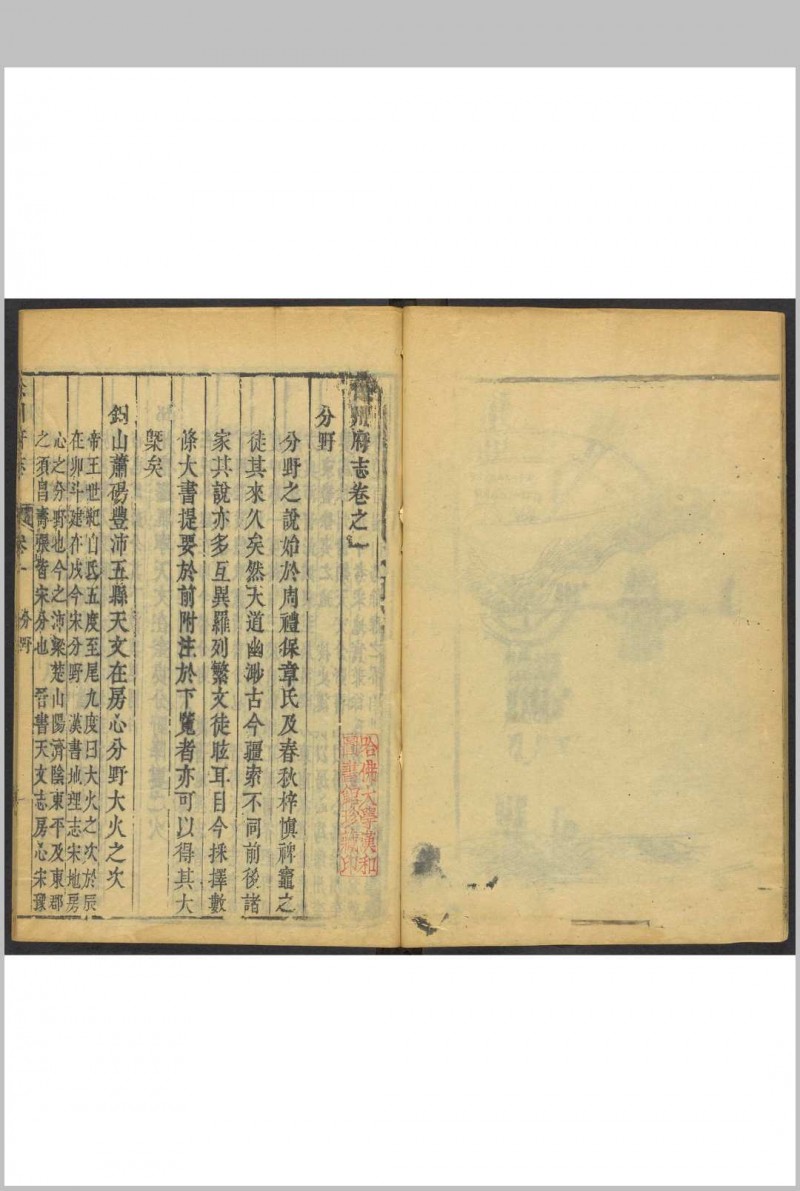 徐州府志卷之一
分野
分野之說始於周禮保章氏及春秋梓慎裨竈之
徒其來久矣然天道幽渺古今疆索不同前後諸
家其說亦多互異羅列繁文徒眩耳目今採擇數
條大書提要於前附注於下覽者亦可以得其大
槩矣
銅山蕭碭豐沛五縣天文在房心分野大火之次
帝王世紀自氐五度至尾九度曰大火之次於辰
在卯斗建在戌今宋分野 漢書地理志宋地房
心之分野也今之沛梁楚山陽濟陰東平及東郡
之須昌壽張皆宋分也 晉書天文志房心宋豫
徐州府志 卷一 分野
哈佛大學漢和
圖書館珍藏印